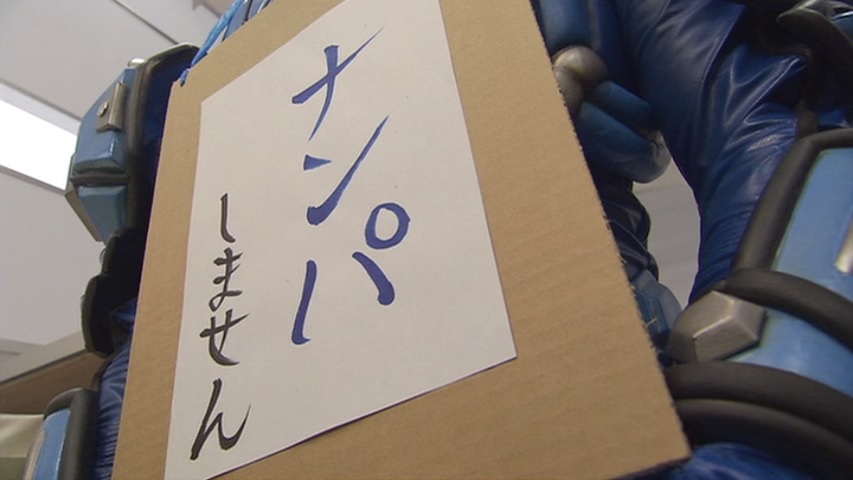 ナンパ
しません